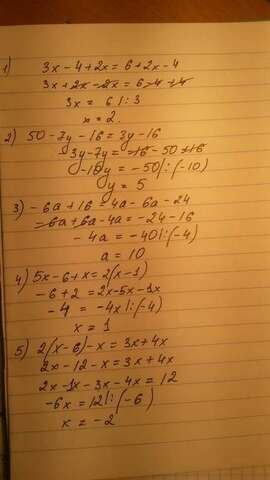 1) 3x - 4 + 2x = 6 + 2x - 4
3x + 2x - 2x = 6 - 4 + 4
3x = 6 |: 3
x = 2
2) 50 - 7y - 16 = 3y - 16
- 3y - 7y = -16 - 50 + 16
-10y = -50 |: (-10)
y = 5
3) - 6a + 16 = 4a - 6a - 24
- 6a + 6a - 4a = -24 - 16
- 4a = -40 |: (-4)
a = 10
4) 5x - 6 + x = 2(x - 1)
- 6 + 2 = 2x - 5x - 1x
- 4 = -4x |: (-4)
x = 1
5) 2(x - 6) - x = 3x + 4x
2x - 12 - x = 3x + 4x
2x - 1x - 3x - 4x = 12
-6x = 12 |: (-6)
x = -2